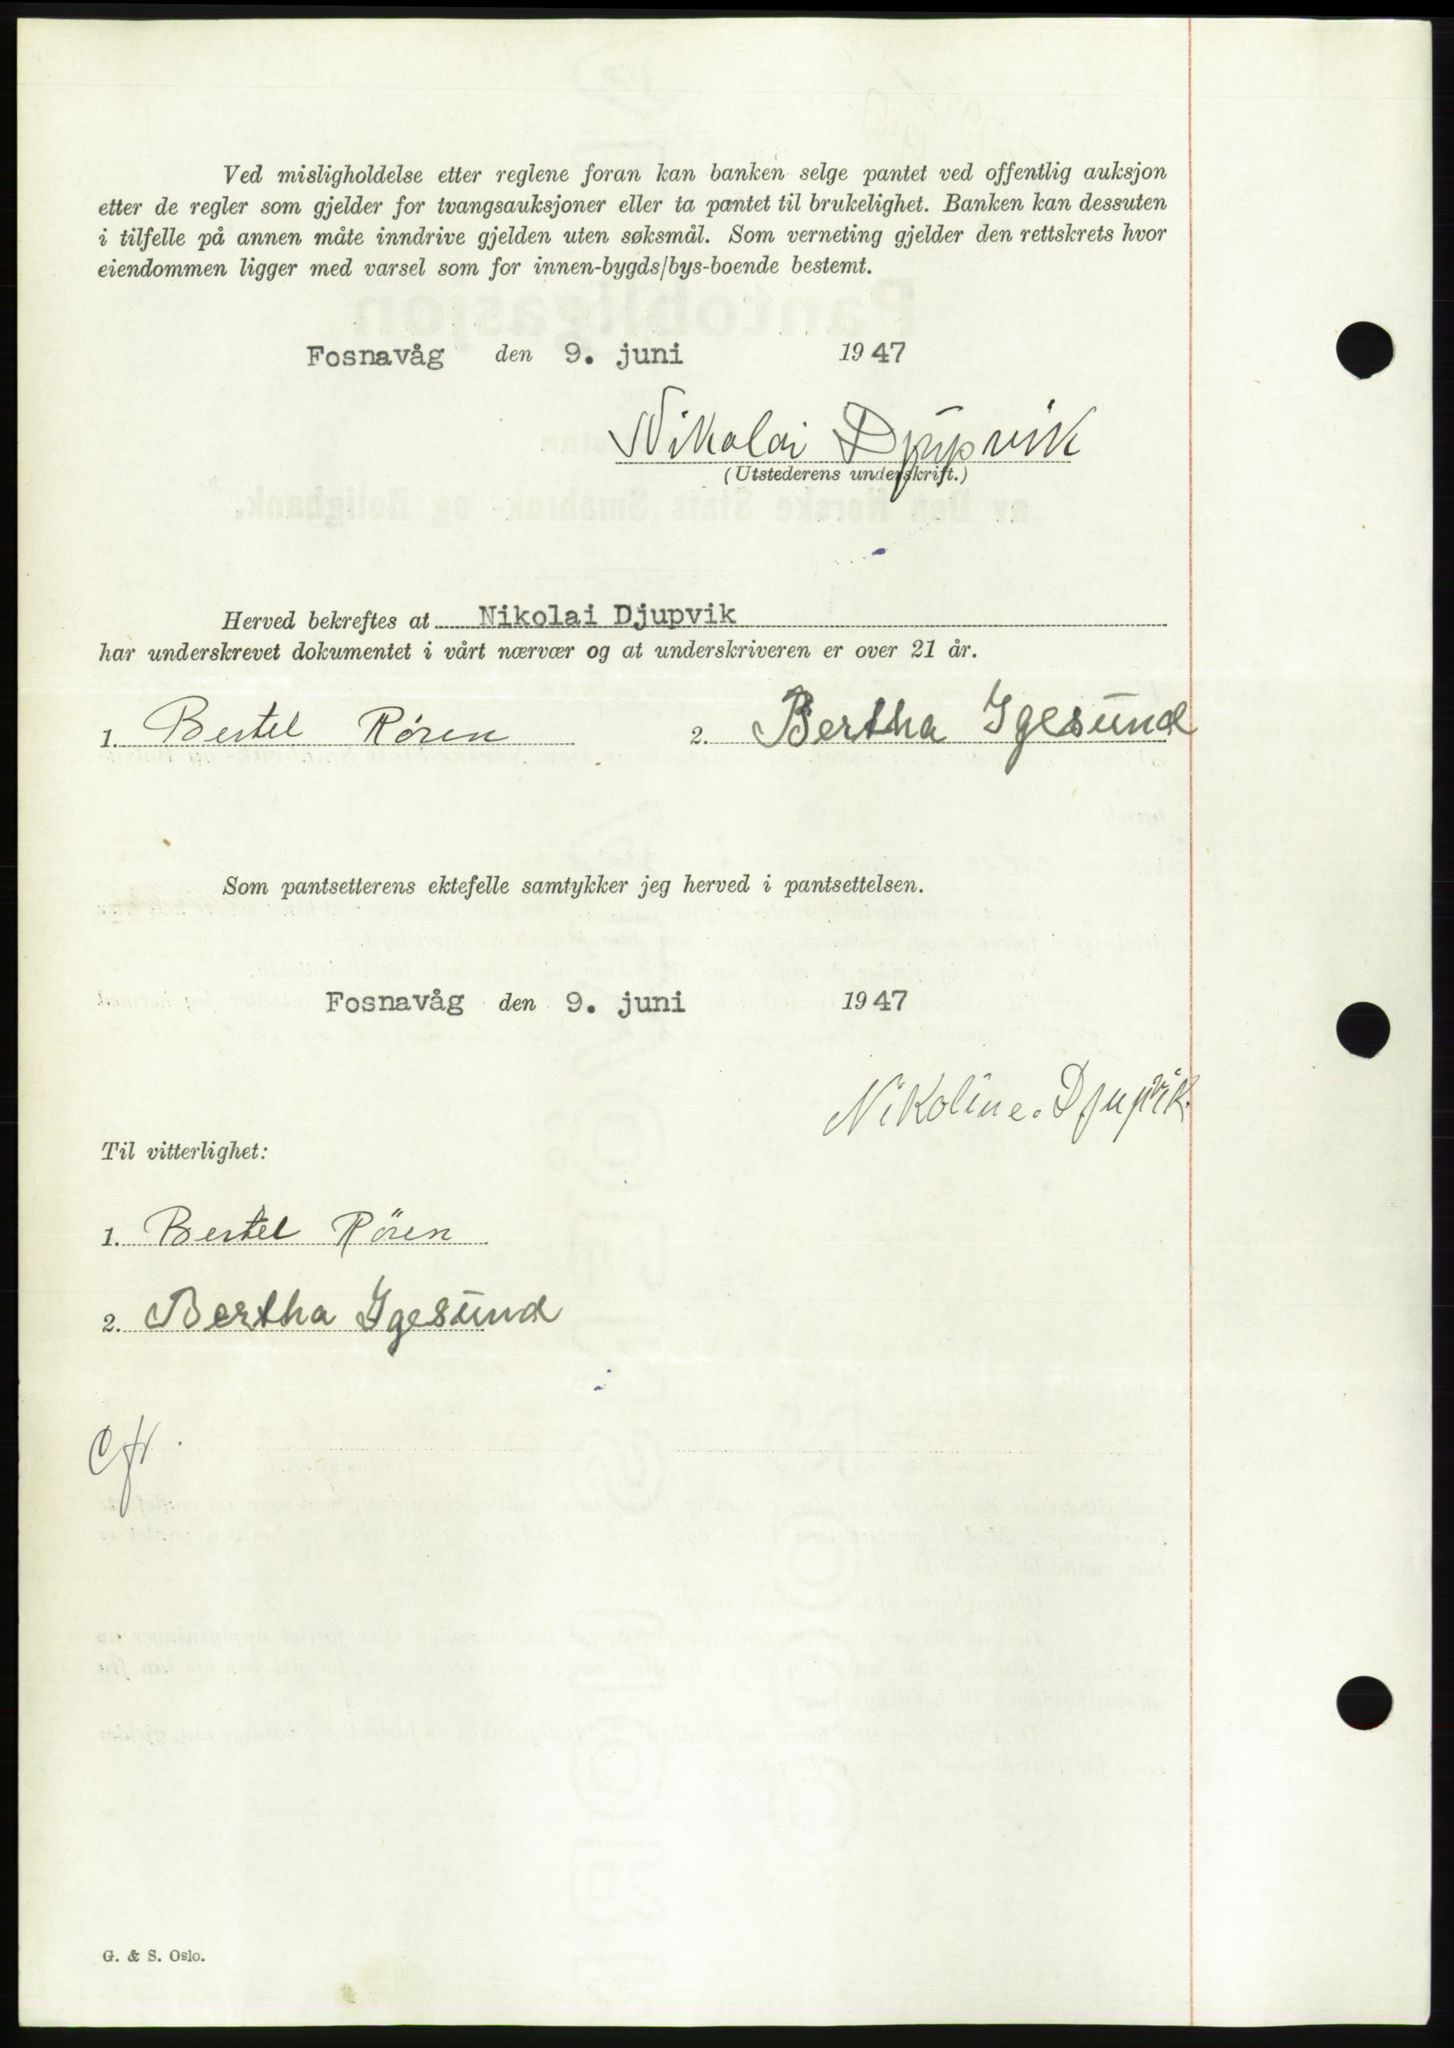 Ved misligholdelse etter reglene foran kan banken selge pantet ved offentlig auksjon
etter de regler som gjelder for tvangsauksjoner eller ta pantet til brukelighet. Banken kan dessuten
i tilfelle på annen måte inndrive gjelden uten søksmål. Som verneting gjelder den rettskrets hvor
eiendommen ligger med varsel som for innen-bygds/bys-boende bestemt.
Fosnavåg den 9. juni 1947
Nikolai Djupvik
(Utstederens underskrift.)
Herved bekreftes at Nikolai Djupvik
har underskrevet dokumentet i vårt nærvær og at underskriveren er over 21 år.
1. Bertel Røren 2. Bertha Igesund
Som pantsetterens ektefelle samtykker jeg herved i pantsettelsen.
Fosnavåg den 9. juni 1947
Nikoline Djupvik.
Til vitterlighet:
1. Bertel Rören
2. Bertha Igesund
Cfr.
G. & S. Oslo.